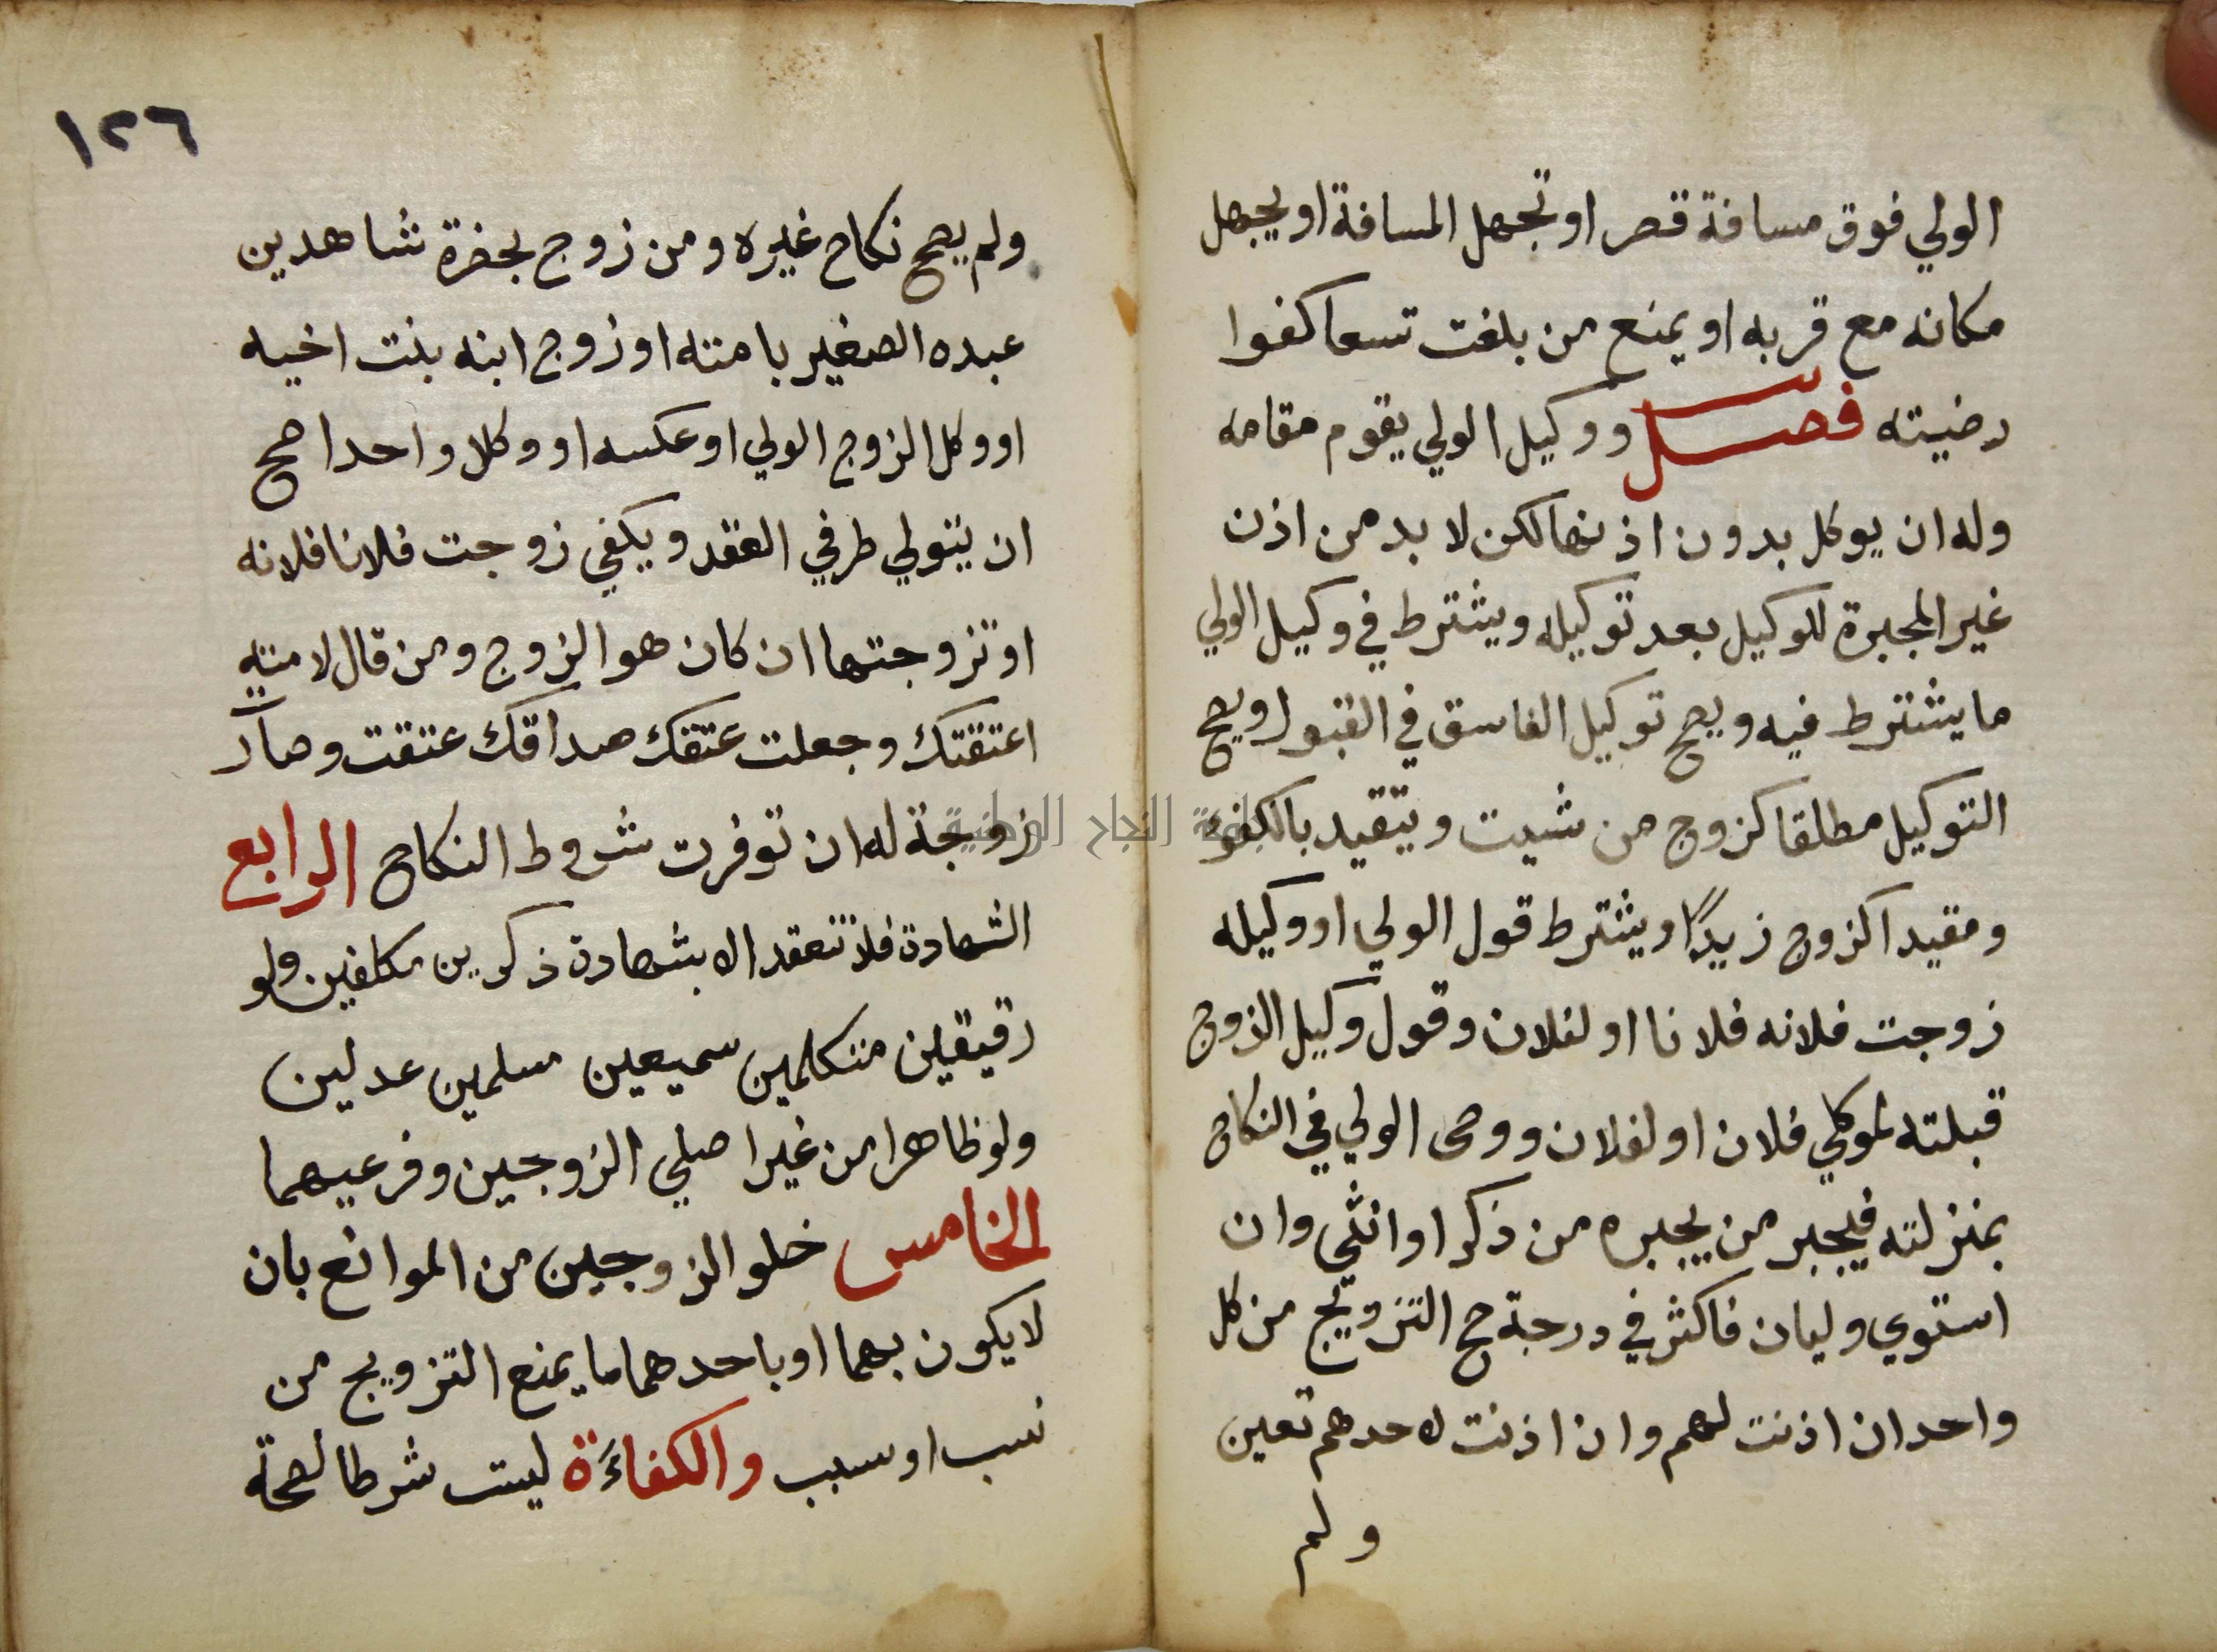 الولي فوق مسافة قصر او تجهل المسافة او يجهل
مكانه مع قربه او يمنع من بلغت تسعا كفوا
رضيته فصل ووكيل الولي يقوم مقامه
وله ان يوكل بدون اذنها لكن لا بد من اذن
غير المجبرة للوكيل بعد توكيله ويشترط في وكيل الولي
ما يشترط فيه ويصح توكيل الفاسق في القبول ويصح
التوكيل مطلقا كزوج من شيت ويتقيد بالكفو
ومقيدا كزوج زيدًا ويشترط قول الولي او وكيله
زوجت فلانه فلانا او لفلان وقول وكيل الزوج
قبلته لموكلي فلان او لفلان ووصى الولي في النكاح
بمنزلته فيجبر من يجبره من ذكر او انثى وان
استوي وليان فاكثر في درجة صح التزويج من كل
واحد ان اذنت لهم وان اذنت لاحدهم تعين
ولم
١٢٦
ولم يصح نكاح غيره ومن زوج بحضرة شاهدين
عبده الصغير بامته او زوج ابنه بنت اخيه
او وكل الزوج الولي او عكسه او وكلا واحدا صح
ان يتولي طرفي العقد ويكفي زوجت فلانا فلانه
او تزوجتها ان كان هو الزوج ومن قال لامته
اعتقتك وجعلت عتقك صداقك عتقت وصارت
زوجة له ان توفرت شروط النكاح الرابع
الشهادة فلا تنعقد الا بشهادة ذكرين مكلفين ولو
رقيقين متكلمين سميعين مسلمين عدلين
ولو ظاهرا من غير اصلي الزوجين وفرعيهما
الخامس خلو الزوجين من الموانع بان
لا يكون بهما او باحدهما ما يمنع التزويج من
نسب او سبب والكفاءَة ليست شرطا لصحة
جامعة النجاح الوطنية